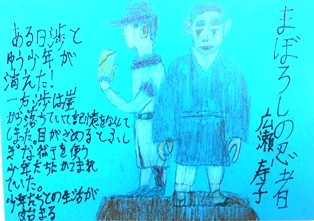 まぼろしの忍者
広瀬寿子
ある日渉と
ゆう少年が
消えた!
一方渉は崖
から落ちていて記憶をなくして
しまった。目がさめるとふし
ぎな行了を使う
少年たちにかこまれ
ていた。
少年たちとの生活が
始まる